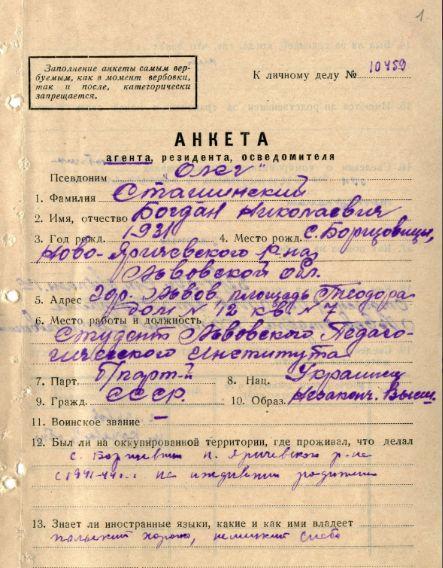 1
Заполнение анкеты самым вер-
буемым, как в момент вербовки,
так и после, категорически
запрещается.
К личному делу № 10459
АНКЕТА
агента, резидента, осведомителя
Псевдоним "Олег"
1. Фамилия Сташинский
2. Имя, отчество Богдан Николаевич
3. Год рожд. 1931 4. Место рожд. с. Борщовицы,
Ново-Яричевского р-на
Львовской обл.
5. Адрес гор. Львов, площадь Теодора
дом № 12 кв. № 7
6. Место работы и должность
Студент Львовского Педаго-
гического Института
7. Парт. б/парт-й 8. Нац. Украинец
9. Гражд. СССР 10. Образ. Незаконч. Высш.
11. Воинское звание —
12. Был ли на оккупированной территории, где проживал, что делал
с. Борщевичи н. Яричевского р-на
с 1941-44 г. на иждивении родителей
13. Знает ли иностранные языки, какие и как ими владеет
польский хорошо, немецкий слабо